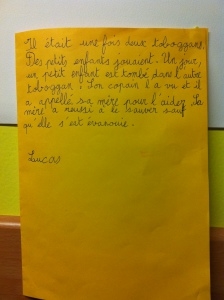 Il était une fois deux toboggans.
Des petits enfants jouaient. Un jour,
un petit enfant est tombé dans l'autre
toboggan. Son copain l'a vu et il
à appellé sa mère pour l'aider. Sa
mère a réussi a le sauver sauf
qu'elle s'est évanouie.
Lucas